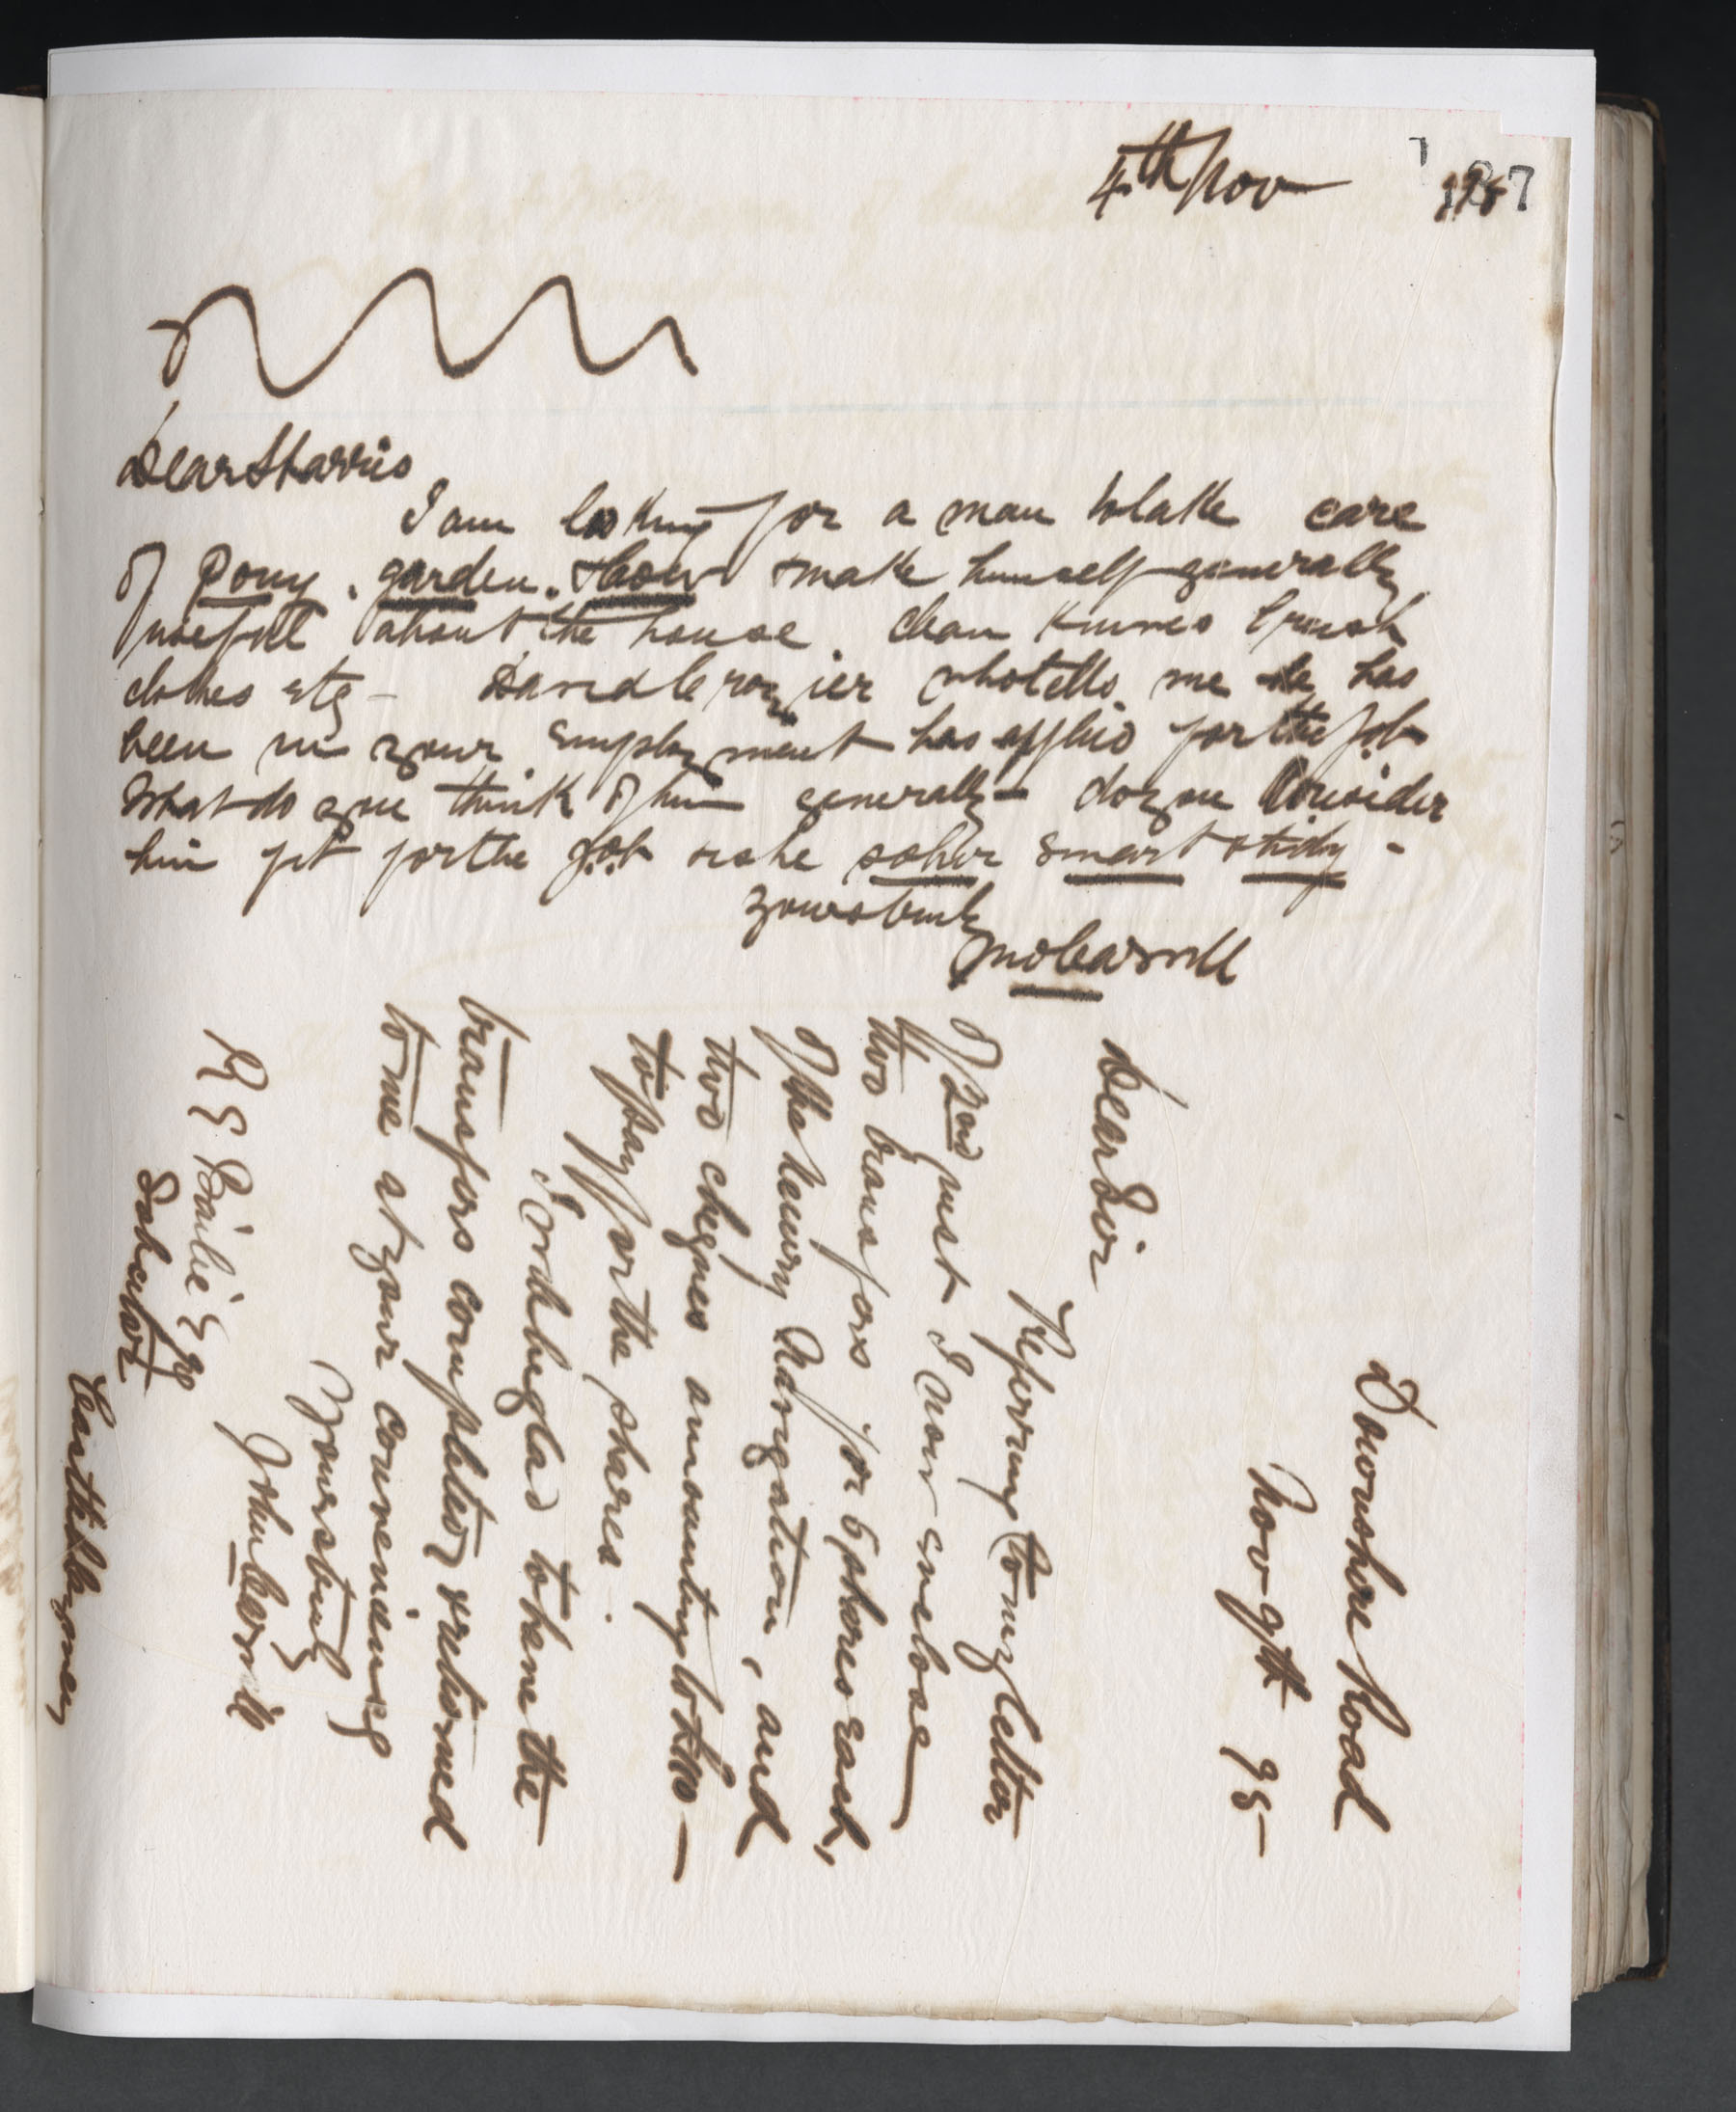 4th Nov
187
Dear Harris
I am looking for a man to take care
of Pony, garden, & Cow & make himself generally
useful about the house, clean Knives brush
clothes etc - David Crozier who tells me he has
been in your employment has applied for the job
What do you think of him generally - do you Consider
him fit for the job is he sober smart & tidy -
yours truly
Jno Carvill
Downshire Road
Nov 9th 95-
Dear Sir
Referring to my letter
of 2nd inst I now enclose
two transfers for 5 shares each,
of the Newry Navigation, and
two cheques amounting to
to pay for the shares.
I will be glad to have the
transfers completed & returned
to me at your convenience
Yours truly
John Carvill
R E Bailie Esq
Solicitor
Castleblayney